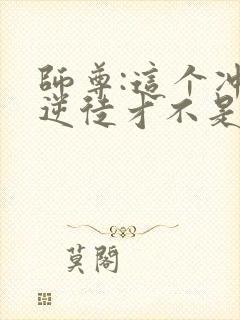 師尊:這个冲
逆徒才不是
莫閣